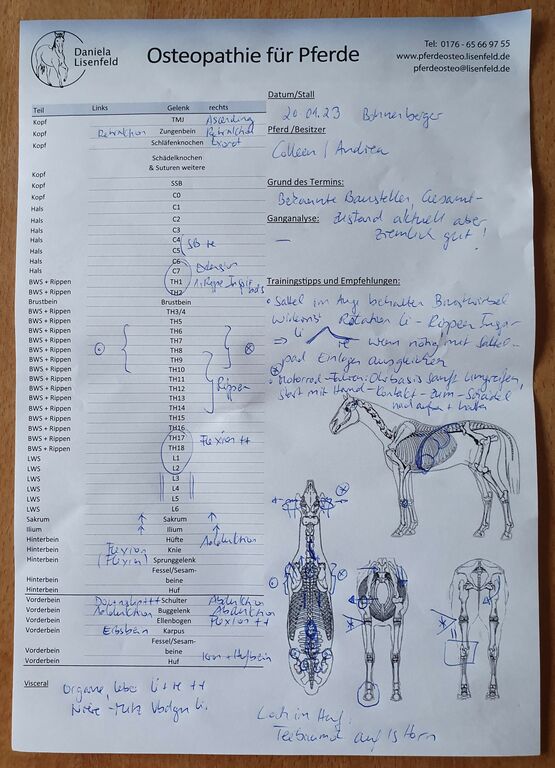 Daniela
Lisenfeld
Osteopathie für Pferde
Tel: 0176 - 65 66 97 55
www.pferdeosteo.lisenfeld.de
pferdeosteo@lisenfeld.de
Datum/Stall
20 01.23
Pferd /Besitzer
Colleen / Andrea
Grund des Termins:
Bekannte Baustellen, Gesamt-
Ganganalyse: zustand aktuell aber
— ziemlich gut!
Trainingstipps und Empfehlungen:
• Sattel im Auge behalten Brustwirbel
Rotation li - Rippen
li
⇒ re wenn nötig mit Sattel-
pad Einlagen ausgleichen
• Ohrbasis sanft umgreifen,
start mit Hand-Kontakt-zum-Schädel
Teil Links Gelenk rechts
Kopf TMJ Ascending
Kopf Retraktion Zungenbein
Kopf Schläfenknochen Exorot
Schädelknochen
Kopf & Suturen weitere
Kopf SSB
Kopf C0
Hals C1
Hals C2
Hals C3
Hals C4
Hals C5 SB re
Hals C6
Hals C7 Extension
BWS + Rippen TH1 1. Rippe
BWS + Rippen TH2
Brustbein Brustbein
BWS + Rippen TH3/4
BWS + Rippen TH5
BWS + Rippen TH6
BWS + Rippen TH7
BWS + Rippen TH8
BWS + Rippen TH9
BWS + Rippen TH10
BWS + Rippen TH11
BWS + Rippen TH12 Rippen
BWS + Rippen TH13
BWS + Rippen TH14
BWS + Rippen TH15
BWS + Rippen TH16
BWS + Rippen TH17 Flexion ++
BWS + Rippen TH18
LWS L1
LWS L2
LWS L3
LWS L4
LWS L5
LWS L6
Sakrum ↑ Sakrum ↑
Ilium ↑ Ilium ↑
Hinterbein Hüfte Adduktion
Hinterbein Flexion Knie
Hinterbein (Flexion) Sprunggelenk
Fessel/Sesam-
Hinterbein beine
Hinterbein Huf
Vorderbein Schulter Abduktion
Vorderbein Adduktion Buggelenk Abduktion
Vorderbein Ellenbogen Flexion ++
Vorderbein Erbsbein Karpus
Fessel/Sesam-
Vorderbein beine
Vorderbein Huf
Visceral
Organe, Leber li + re ++
Niere - Milz li.
Loch im Huf.